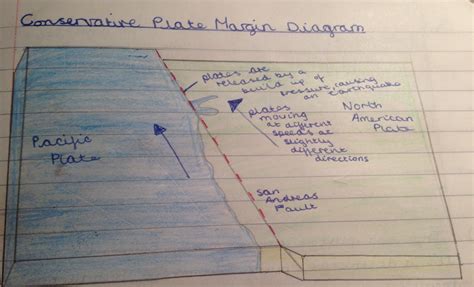 Conservative Plate Margin Diagram
plates are
released by a
build up of
pressure, causing
an earthquake
plates
moving
at different
speeds or
slightly
different
directions
North
American
Plate
Pacific
Plate
San
Andreas
Fault